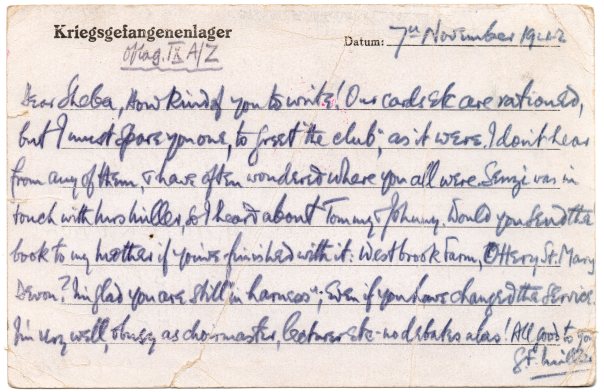 Kriegsgefangenenlager
Datum: 7th November 1942
Oflag. IX A/Z
Dear Sheba, How kind of you to write! Our cards etc are rationed,
but I must spare you one, to greet "the club", as it were. I don't hear
from any of them, & have often wondered where you all were. was in
touch with Mrs Miller, so I heard about Tommy & Johnny. Would you send the
book to my mother if you've finished with it: Westbrook Farm, Ottery St. Mary
Devon? I'm glad you are still "in harness"; even if you have changed the service.
I'm very well, & busy as choirmaster, lecturer etc - no debates alas! All good to you
Miller